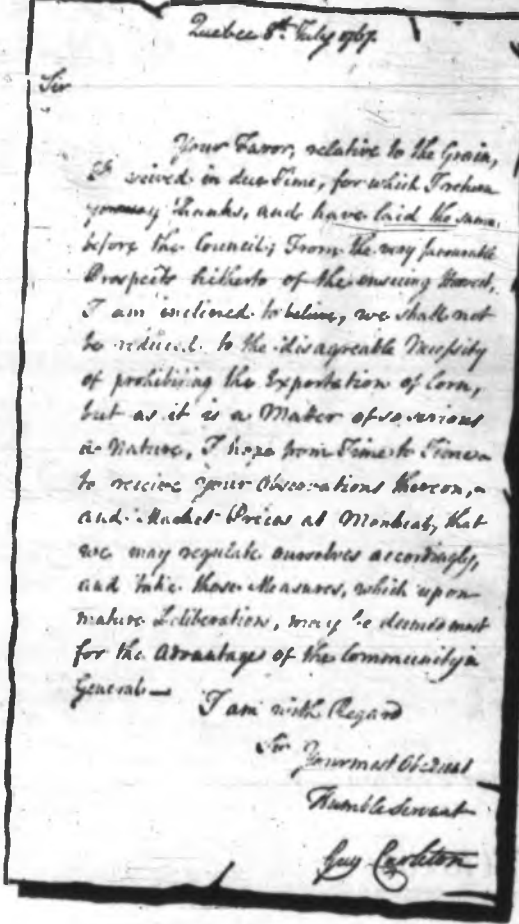 Quebec 8th July 1767.
Sir
Your Favor, relative to the Grain,
I received in due Time, for which I return
you my Thanks, and have laid the same
before the Council; From the very favourable
Prospects hitherto of the ensuing Harvest,
I am inclined to believe, we shall not
be reduced to the disagreable Necessity
of prohibiting the Exportation of Corn,
but as it is a Matter of so serious
a Nature, I hope from Time to Time
to receive your Observations thereon,
and Market Prices at Montreal, that
we may regulate ourselves accordingly,
and take those Measures, which upon
mature Deliberation, may be deemed most
for the Advantage of the Community in
General—
I am with Regard
Sir
Your most Obedient
Humble Servant
Guy Carleton